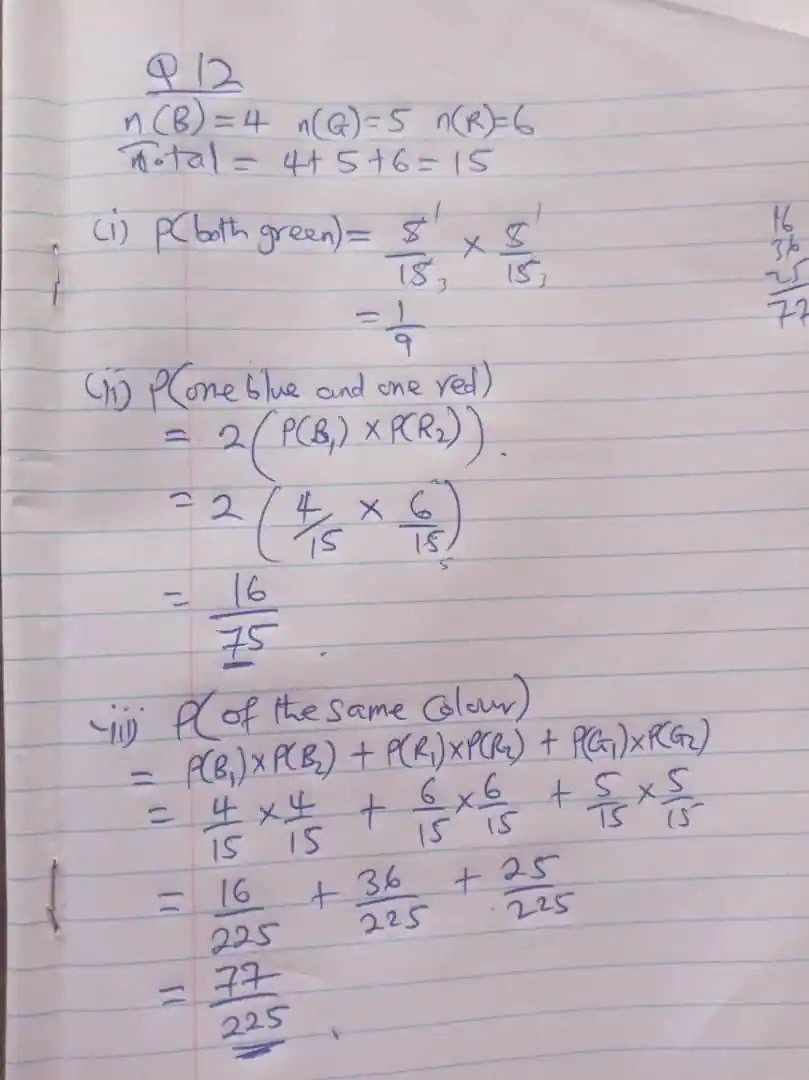 Q 12
n(B) = 4 n(G) = 5 n(R) = 6
Total = 4 + 5 + 6 = 15
(i) P(both green) = 5/15 × 5/15
1 1
3 3
= 1/9
(ii) P(one blue and one red)
= 2(P(B₁) × P(R₂)).
= 2(4/15 × 6/15)
5
= 16/75.
iii) P(of the same colour)
= P(B₁) × P(B₂) + P(R₁) × P(R₂) + P(G₁) × P(G₂)
= 4/15 × 4/15 + 6/15 × 6/15 + 5/15 × 5/15
= 16/225 + 36/225 + 25/225
= 77/225.
16
36
25
77